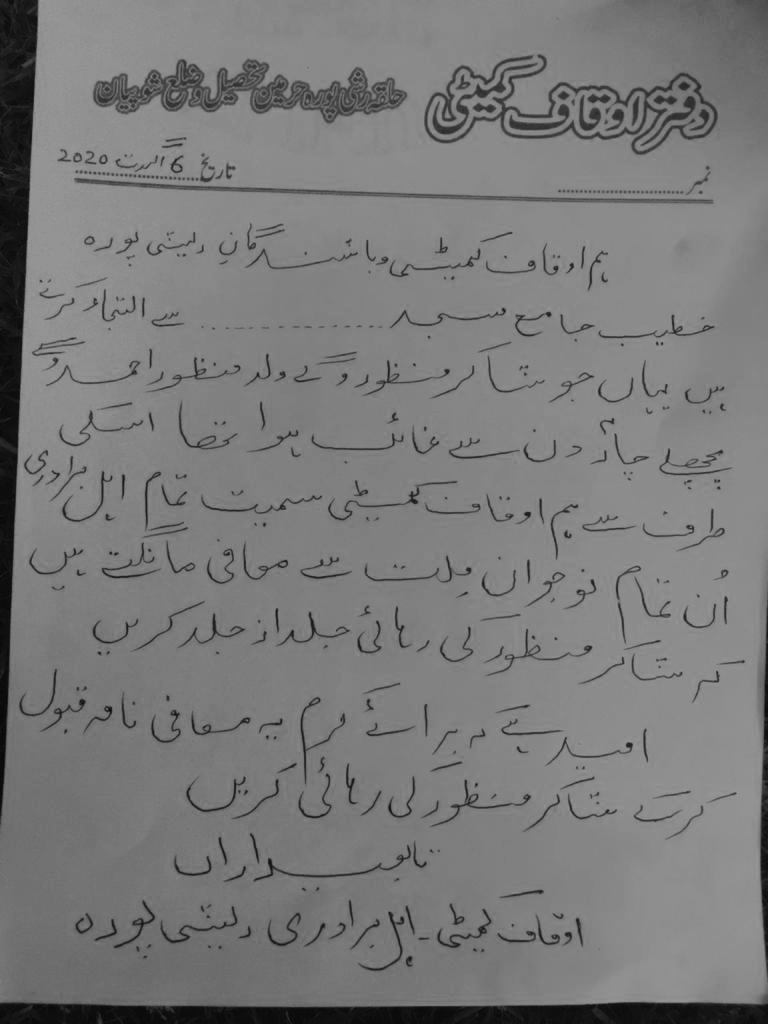 دفتر اوقاف کمیٹی حلقہ رشی پورہ حرمین تحصیل و ضلع شوپیان
نمبر ................ تاریخ 6 اگست 2020
ہم اوقاف کمیٹی و باشندگانِ ریشی پورہ
خطیب جامع مسجد ................ سے التجاء کرتے
ہیں یہاں جو شاکر منظور وگے ولد منظور احمد وگے
پچھلے چار دن سے غائب ہوا تھا اسکی
طرف سے ہم اوقاف کمیٹی سمیت تمام اہل برادری
اُن تمام نوجوان مِلت سے معافی مانگتے ہیں
کہ شاکر منظور کی رہائی جلد از جلد کریں
امید ہے کہ برائے کرم یہ معافی نامہ قبول
کرکے شاکر منظور کی رہائی کریں
تابعیداراں
اوقاف کمیٹی - اہل برادری ریشی پورہ